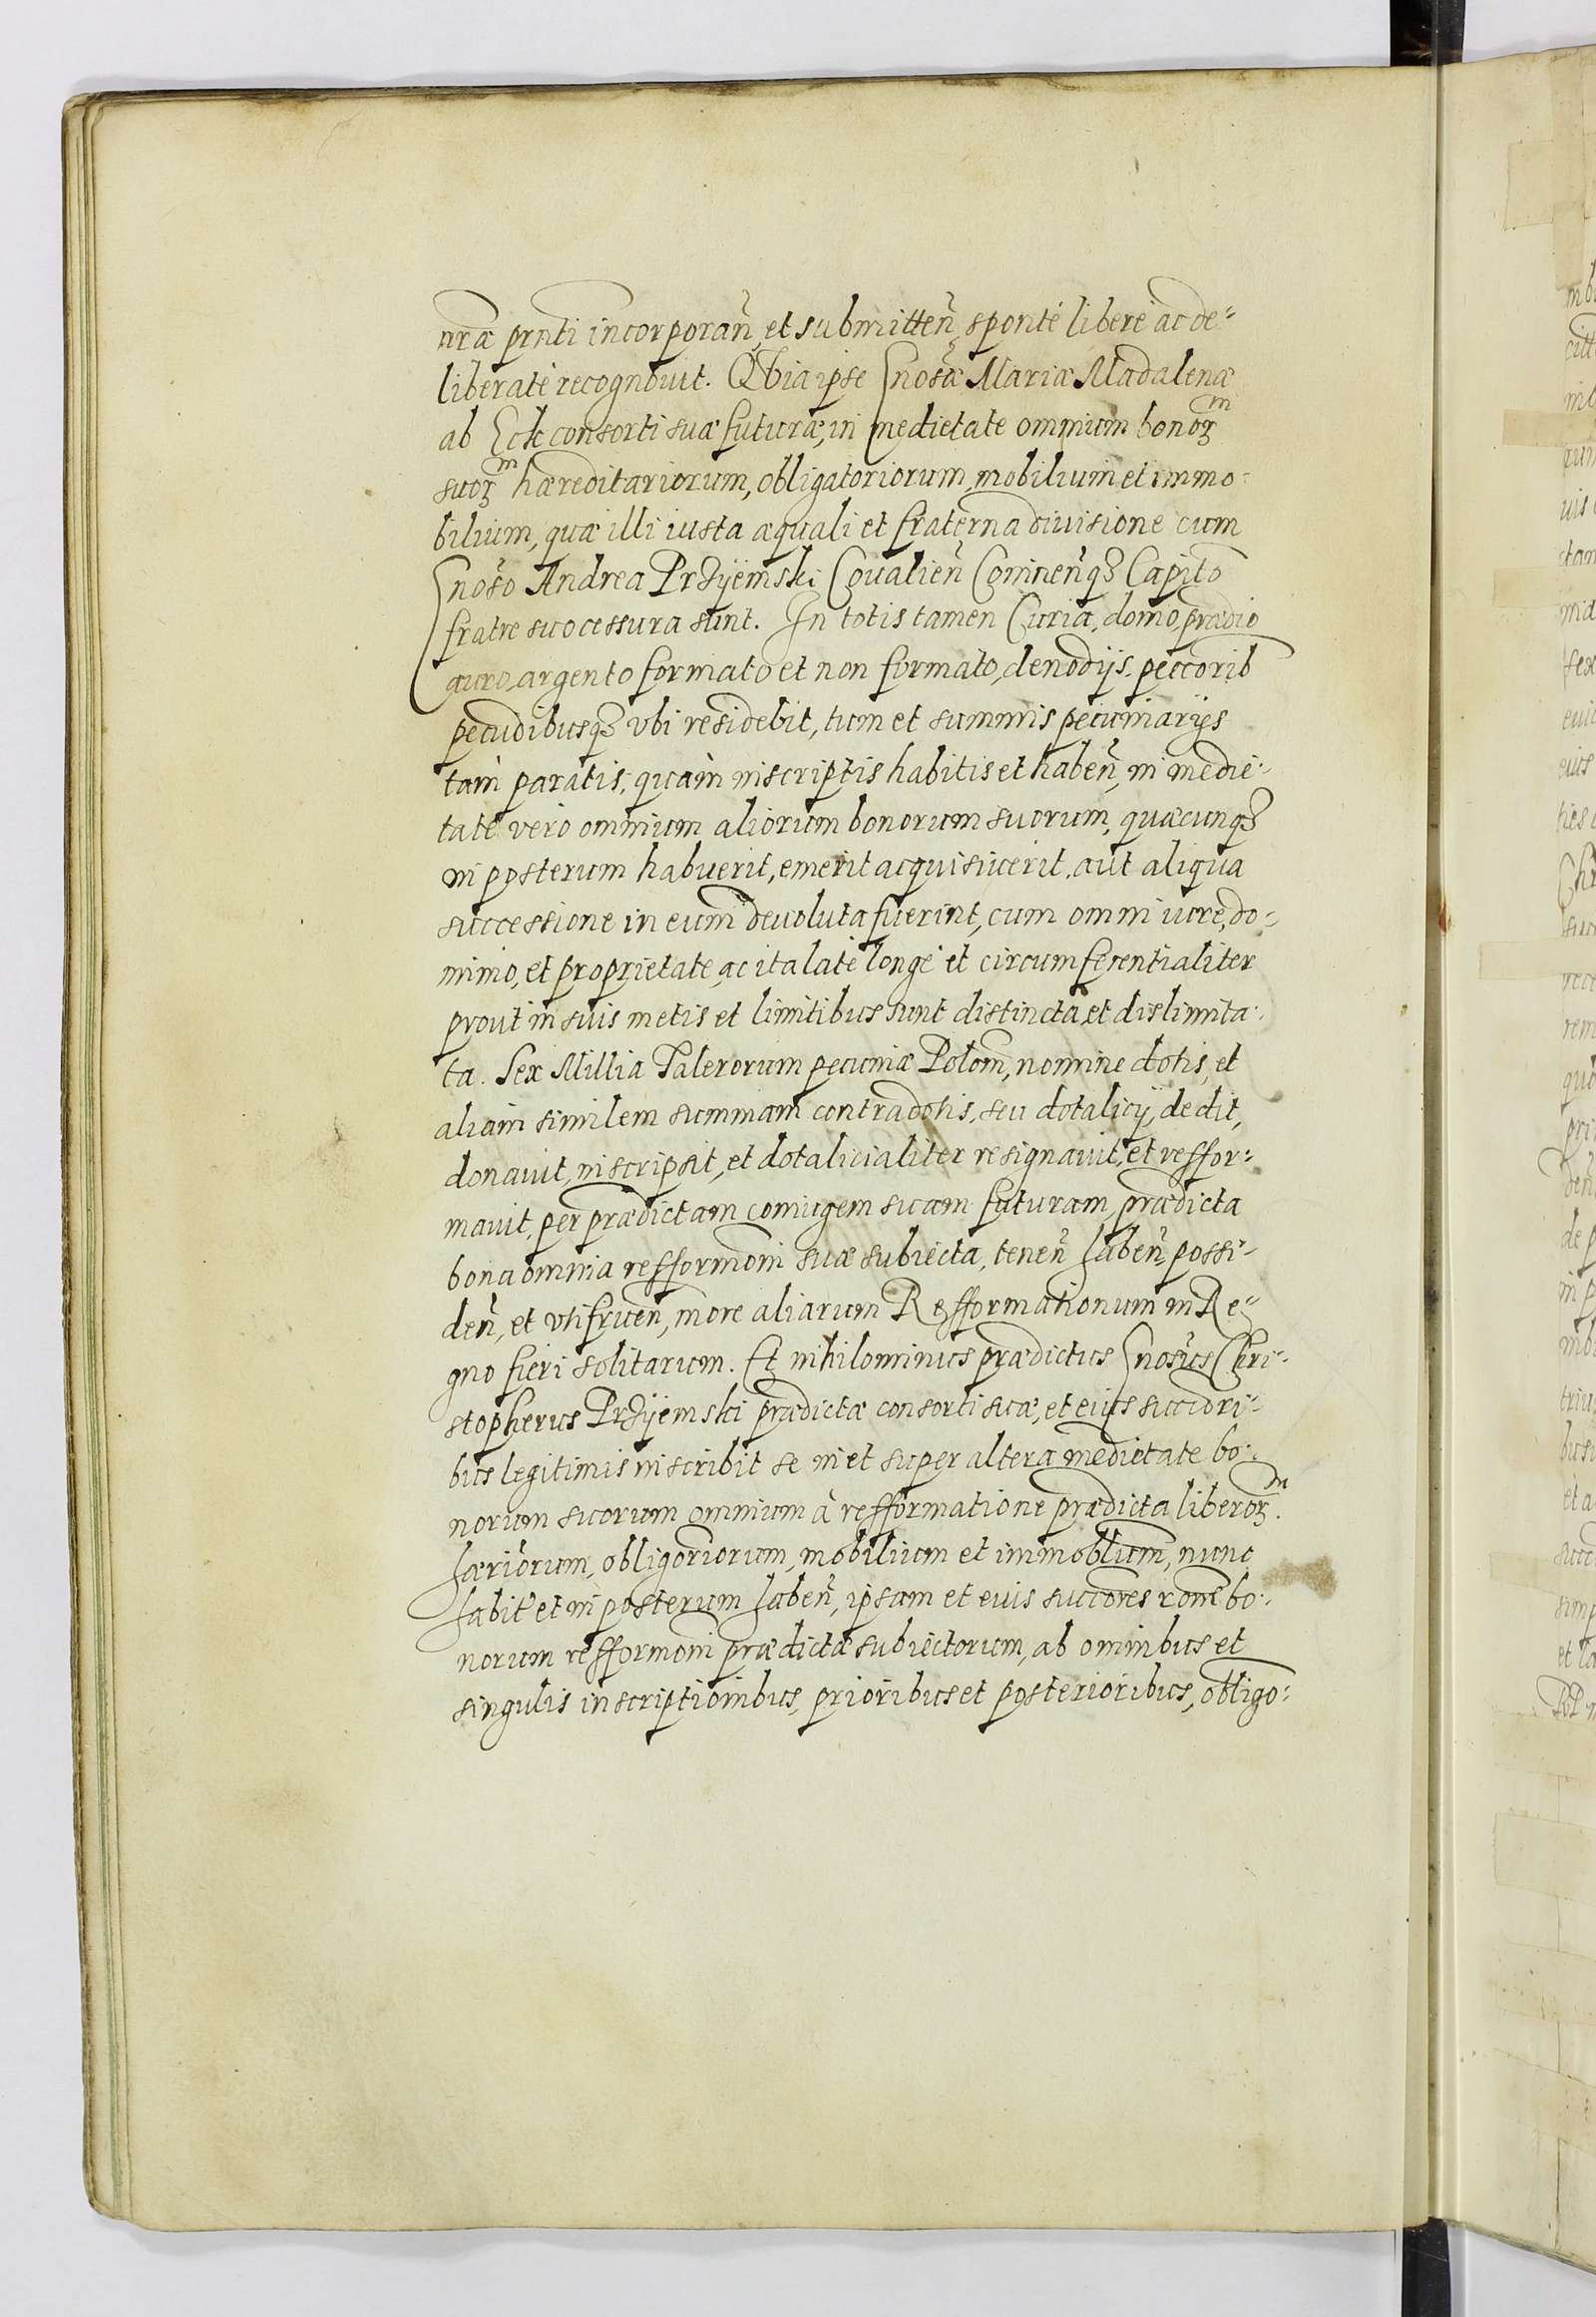 nræ prnti incorporan̄, et submitten̄, sponte libere ac de-
liberate recognovit. Qvia ipse Gnosæ Mariæ Madalenæ
ab Eck consorti suæ futuræ, in medietate omnium bonorꝫm
suorꝫm hæreditariorum, obligatoriorum, mobilium et immo-
bilium, quæ illi iusta æquali et fraterna divisione cum
Gnoso Andrea Przÿemski Covalien̄ Coninen̄qꝫ Capito
fratre successura sunt. In totis tamen Curia, domo, prædio
auro, argento formato et non formato, clenodijs, peccorib
pecudibusqꝫ vbi residebit, tum et summis pecuniarijs
tam paratis, quam inscriptis habitis et haben̄, in medie-
tate vero omnium aliorum bonorum suorum, quæcunqꝫ
in posterum habuerit, emerit acquisiverit, aut aliqua
successione in eum devoluta fuerint, cum omni iure, do-
minio, et proprietate, ac ita late longe et circumferentialiter
prout in suis metis et limitibus sunt distincta et dislimita-
ta. Sex Millia Talerorum pecuniæ Polon, nomine dotis, et
aliam similem summam contradotis, seu dotalicij, dedit,
donavit, inscripsit, et dotalicialiter resignavit, et reffor-
mavit, per prædictam coniugem suam futuram, prædicta
bona omnia refformoni suæ subiecta, tenen̄ haben̄, possi-
den̄, et vtifruen̄, more aliarum Refformationum in Re-
gno fieri solitarum. Et nihilominus prædictus Gnosus Chri-
stopherus Przÿemski prædictæ consorti suæ, et eius succori-
bus legitimis inscribit se in et super altera medietate bo-
norum suorum omnium à refformatione prædicta liberorꝫm.
hæriorum, obligoriorum, mobilium et immoblium, nunc
habit' et in posterum haben̄, ipsam et eius succores rone bo-
norum refformoni prædictæ subiectorum, ab omnibus et
singulis inscriptionibus, prioribus et posterioribus, obligo-